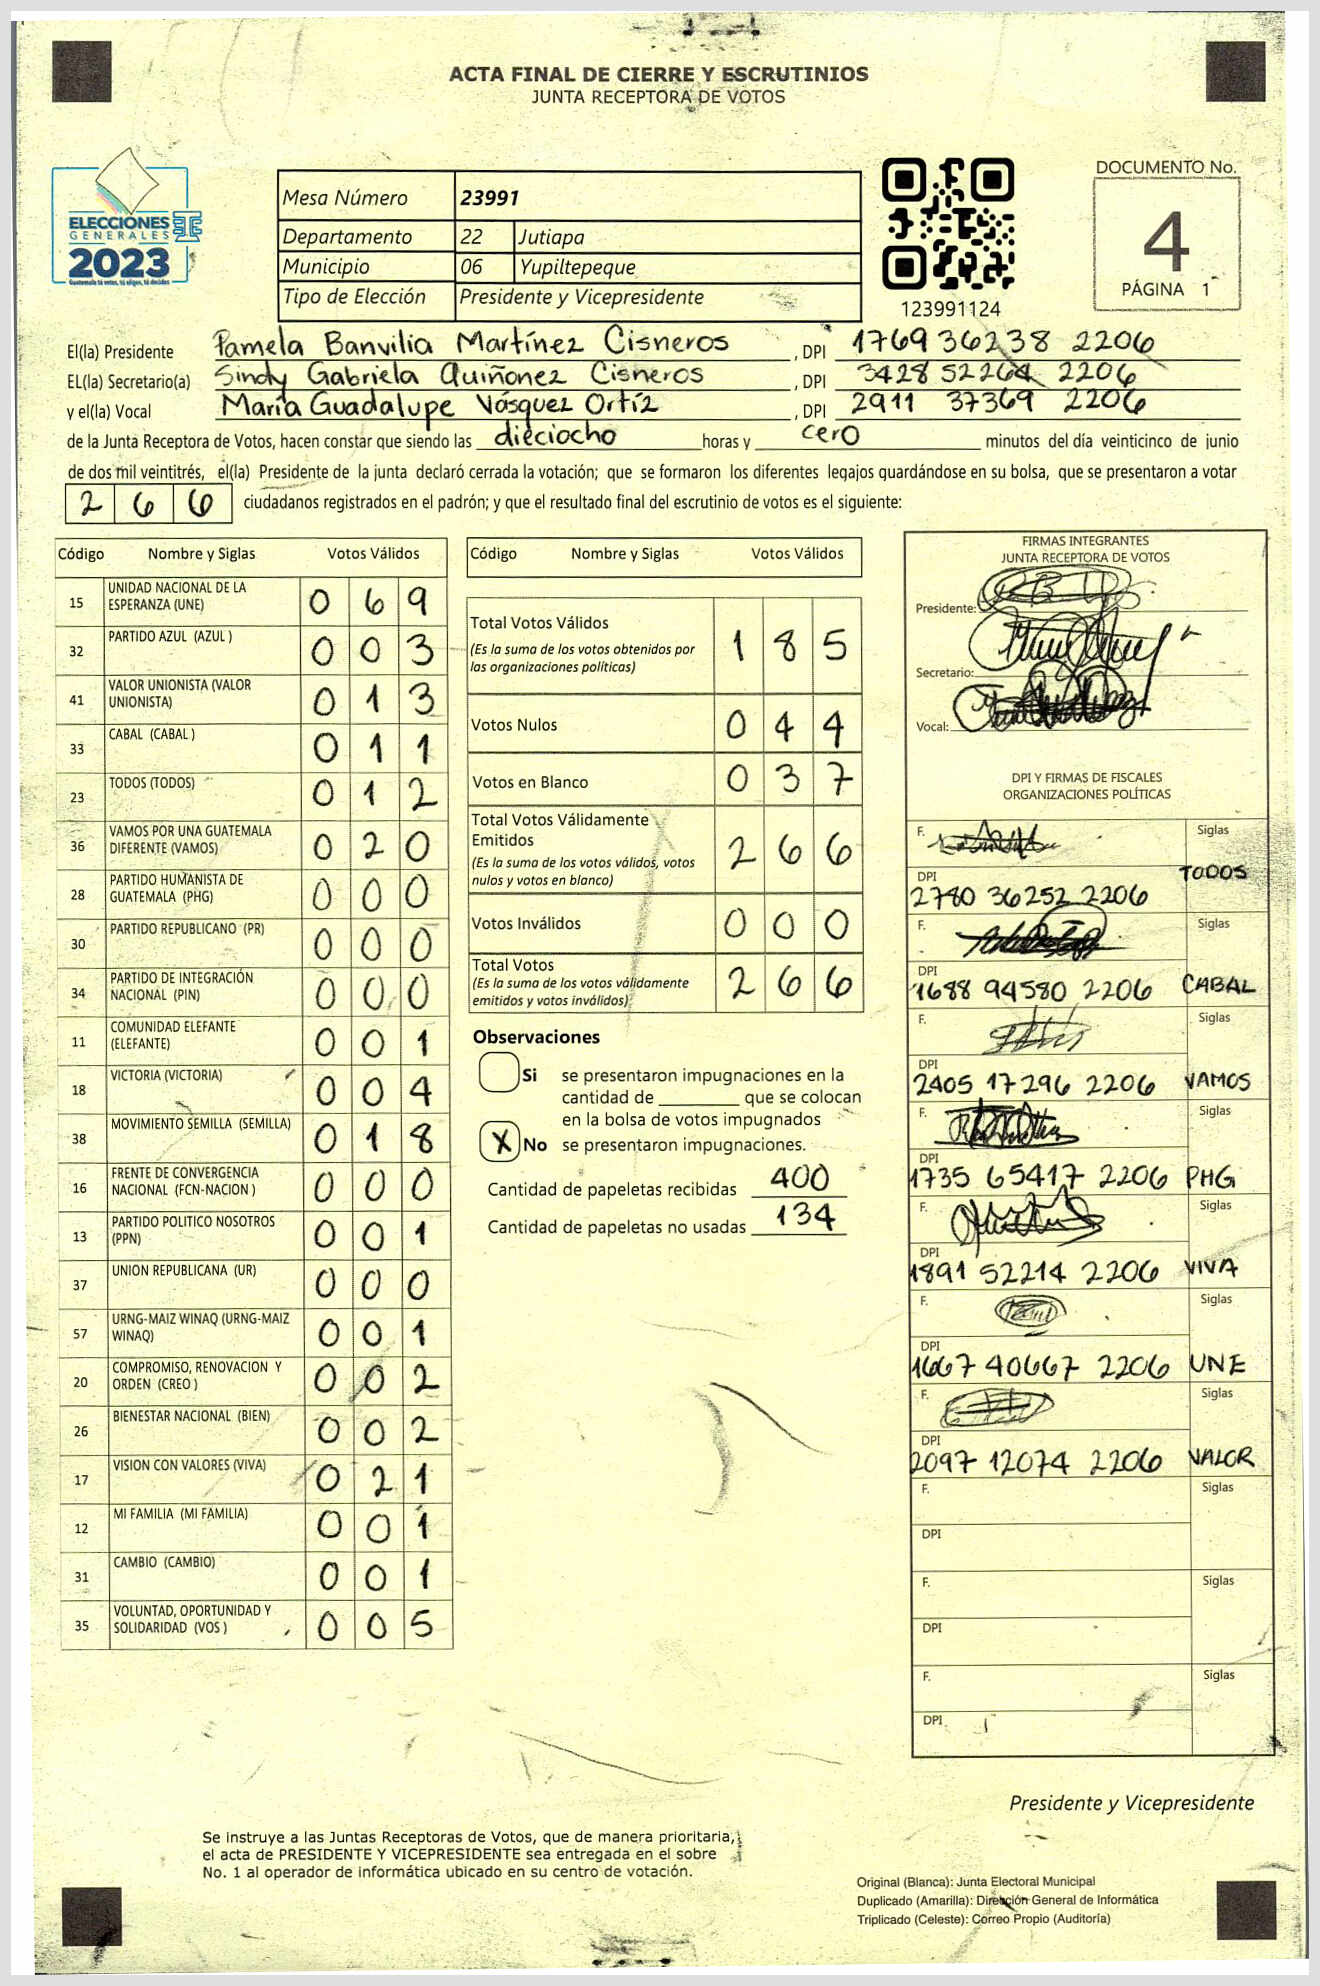 ACTA FINAL DE CIERRE Y ESCRUTINIOS
JUNTA RECEPTORA DE VOTOS
ELECCIONES
GENERALES
2023
Guatemala tú votas, tú eliges, tú decides
Mesa Número 23991
Departamento 22 Jutiapa
Municipio 06 Yupiltepeque
Tipo de Elección Presidente y Vicepresidente
123991124
DOCUMENTO No.
4
PÁGINA 1
El(la) Presidente Pamela Banvilia Martínez Cisneros , DPI 1769 36238 2206
EL(la) Secretario(a) Sindy Gabriela Quiñonez Cisneros , DPI 3428 52264 2206
y el(la) Vocal María Guadalupe Vásquez Ortíz , DPI 2911 37369 2206
de la Junta Receptora de Votos, hacen constar que siendo las dieciocho horas y cero minutos del día veinticinco de junio
de dos mil veintitrés, el(la) Presidente de la junta declaró cerrada la votación; que se formaron los diferentes legajos quardándose en su bolsa, que se presentaron a votar
266 ciudadanos registrados en el padrón; y que el resultado final del escrutinio de votos es el siguiente:
Código Nombre y Siglas Votos Válidos
15 UNIDAD NACIONAL DE LA ESPERANZA (UNE) 0 6 9
32 PARTIDO AZUL (AZUL ) 0 0 3
41 VALOR UNIONISTA (VALOR UNIONISTA) 0 1 3
33 CABAL (CABAL ) 0 1 1
23 TODOS (TODOS) 0 1 2
36 VAMOS POR UNA GUATEMALA DIFERENTE (VAMOS) 0 2 0
28 PARTIDO HUMANISTA DE GUATEMALA (PHG) 0 0 0
30 PARTIDO REPUBLICANO (PR) 0 0 0
34 PARTIDO DE INTEGRACIÓN NACIONAL (PIN) 0 0 0
11 COMUNIDAD ELEFANTE (ELEFANTE) 0 0 1
18 VICTORIA (VICTORIA) 0 0 4
38 MOVIMIENTO SEMILLA (SEMILLA) 0 1 8
16 FRENTE DE CONVERGENCIA NACIONAL (FCN-NACION ) 0 0 0
13 PARTIDO POLITICO NOSOTROS (PPN) 0 0 1
37 UNION REPUBLICANA (UR) 0 0 0
57 URNG-MAIZ WINAQ (URNG-MAIZ WINAQ) 0 0 1
20 COMPROMISO, RENOVACION Y ORDEN (CREO ) 0 0 2
26 BIENESTAR NACIONAL (BIEN) 0 0 2
17 VISION CON VALORES (VIVA) 0 2 1
12 MI FAMILIA (MI FAMILIA) 0 0 1
31 CAMBIO (CAMBIO) 0 0 1
35 VOLUNTAD, OPORTUNIDAD Y SOLIDARIDAD (VOS ) 0 0 5
Código Nombre y Siglas Votos Válidos
Total Votos Válidos 1 8 5
(Es la suma de los votos obtenidos por
las organizaciones políticas)
Votos Nulos 0 4 4
Votos en Blanco 0 3 7
Total Votos Válidamente
Emitidos 2 6 6
(Es la suma de los votos válidos, votos
nulos y votos en blanco)
Votos Inválidos 0 0 0
Total Votos 2 6 6
(Es la suma de los votos válidamente
emitidos y votos inválidos)
Observaciones
Si se presentaron impugnaciones en la
cantidad de ________ que se colocan
en la bolsa de votos impugnados
X No se presentaron impugnaciones.
Cantidad de papeletas recibidas 400
Cantidad de papeletas no usadas 134
FIRMAS INTEGRANTES
JUNTA RECEPTORA DE VOTOS
Presidente:
Secretario:
Vocal:
DPI Y FIRMAS DE FISCALES
ORGANIZACIONES POLÍTICAS
F. Siglas
DPI TODOS
2780 36252 2206
F. Siglas
DPI
1688 94580 2206 CABAL
F. Siglas
DPI
2405 17296 2206 VAMOS
F. Siglas
DPI
1735 65417 2206 PHG
F. Siglas
DPI
1891 52214 2206 VIVA
F. Siglas
DPI
1667 40667 2206 UNE
F. Siglas
DPI
2097 12074 2206 VALOR
F. Siglas
DPI
F. Siglas
DPI
F. Siglas
DPI
Presidente y Vicepresidente
Se instruye a las Juntas Receptoras de Votos, que de manera prioritaria,
el acta de PRESIDENTE Y VICEPRESIDENTE sea entregada en el sobre
No. 1 al operador de informática ubicado en su centro de votación.
Original (Blanca): Junta Electoral Municipal
Duplicado (Amarilla): Dirección General de Informática
Triplicado (Celeste): Correo Propio (Auditoría)